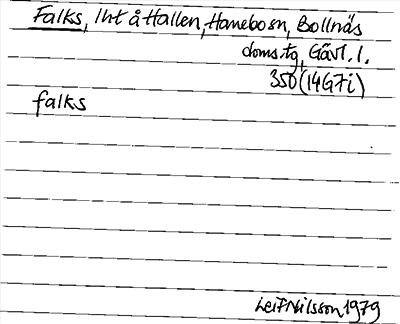 Falks, lht å Hallen, Hanebo sn, Bollnäs
doms.tg, Gävl. l.
350 (14G7i)
falks
Leif Nilsson 1979